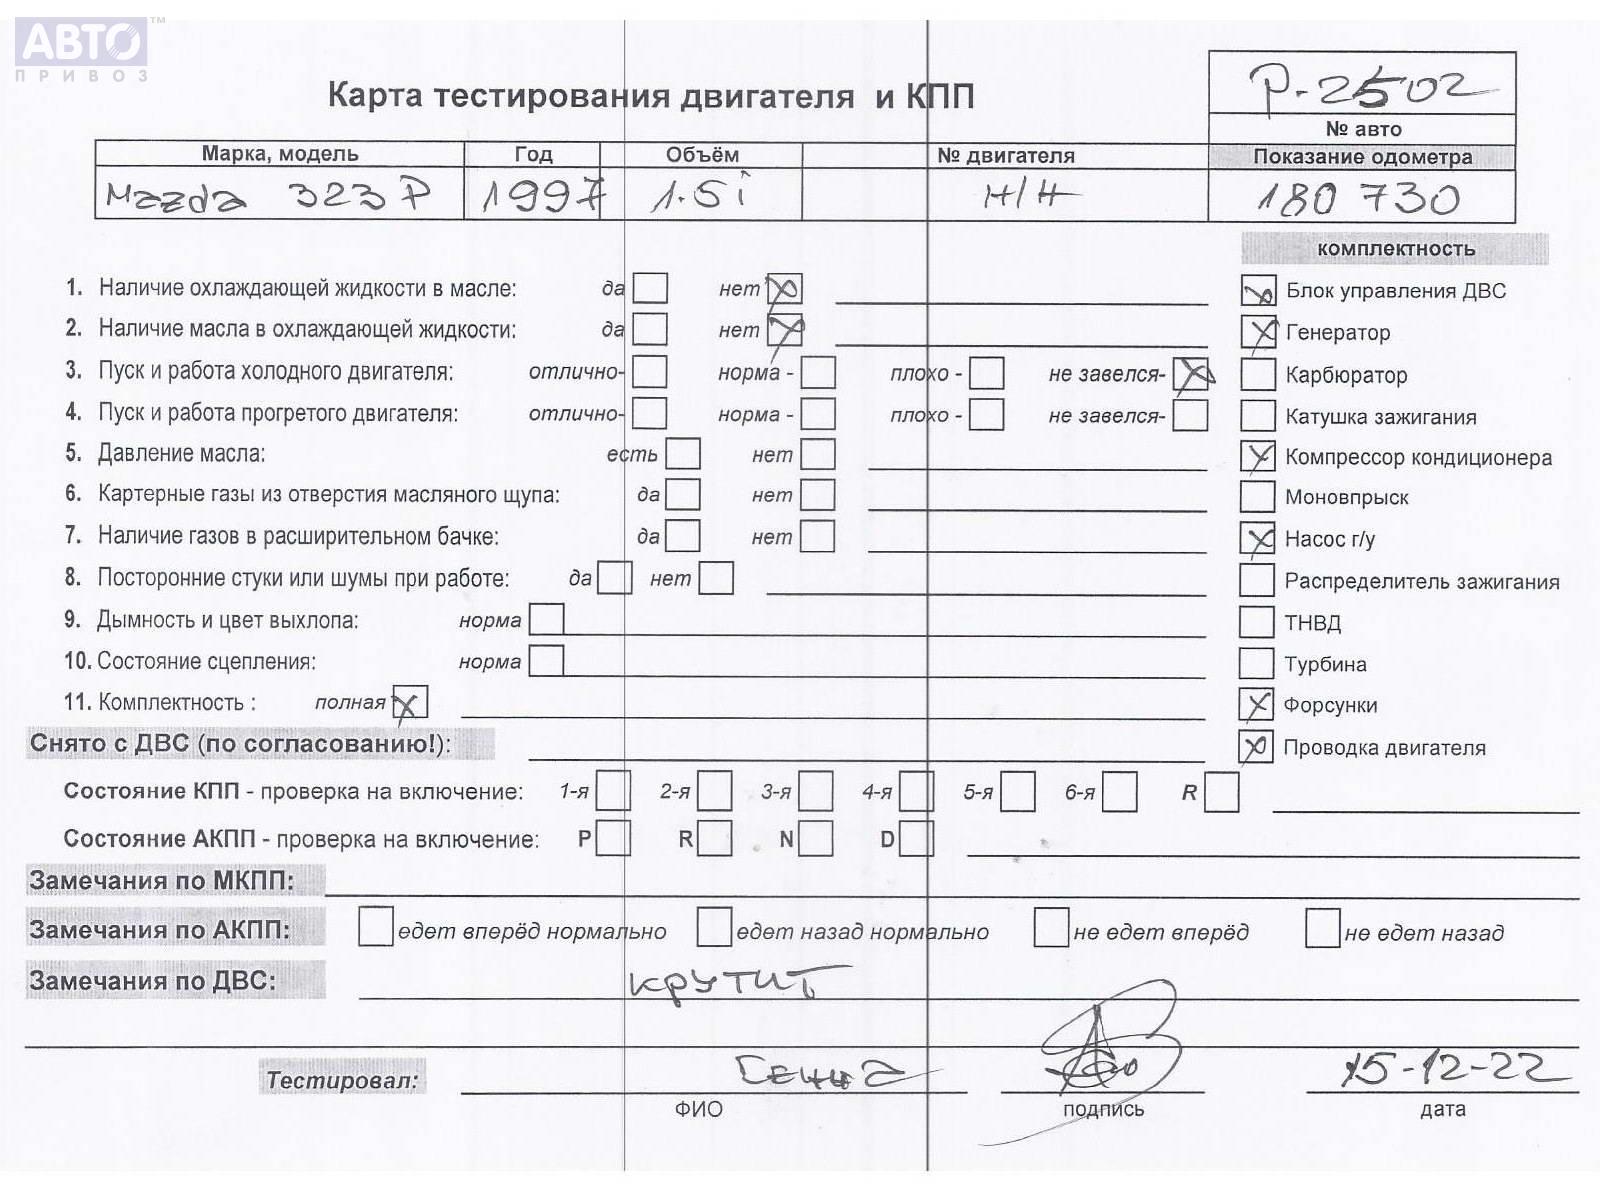 АВТО™
ПРИВОЗ
P-2502
Карта тестирования двигателя и КПП
№ авто
Марка, модель Год Объём № двигателя Показание одометра
Mazda 323 P 1997 1.5i Н/Н 180 730
комплектность
1. Наличие охлаждающей жидкости в масле: да нет
Блок управления ДВС
2. Наличие масла в охлаждающей жидкости: да нет
Генератор
3. Пуск и работа холодного двигателя: отлично- норма - плохо - не завелся-
Карбюратор
4. Пуск и работа прогретого двигателя: отлично- норма - плохо - не завелся-
Катушка зажигания
5. Давление масла: есть нет
Компрессор кондиционера
6. Картерные газы из отверстия масляного щупа: да нет
Моновпрыск
7. Наличие газов в расширительном бачке: да нет
Насос г/у
8. Посторонние стуки или шумы при работе: да нет
Распределитель зажигания
9. Дымность и цвет выхлопа: норма
ТНВД
10. Состояние сцепления: норма
Турбина
11. Комплектность : полная
Форсунки
Снято с ДВС (по согласованию!):
Проводка двигателя
Состояние КПП - проверка на включение: 1-я 2-я 3-я 4-я 5-я 6-я R
Состояние АКПП - проверка на включение: P R N D
Замечания по МКПП:
Замечания по АКПП: едет вперёд нормально едет назад нормально не едет вперёд не едет назад
Замечания по ДВС: крутит
Тестировал: 15-12-22
ФИО подпись дата